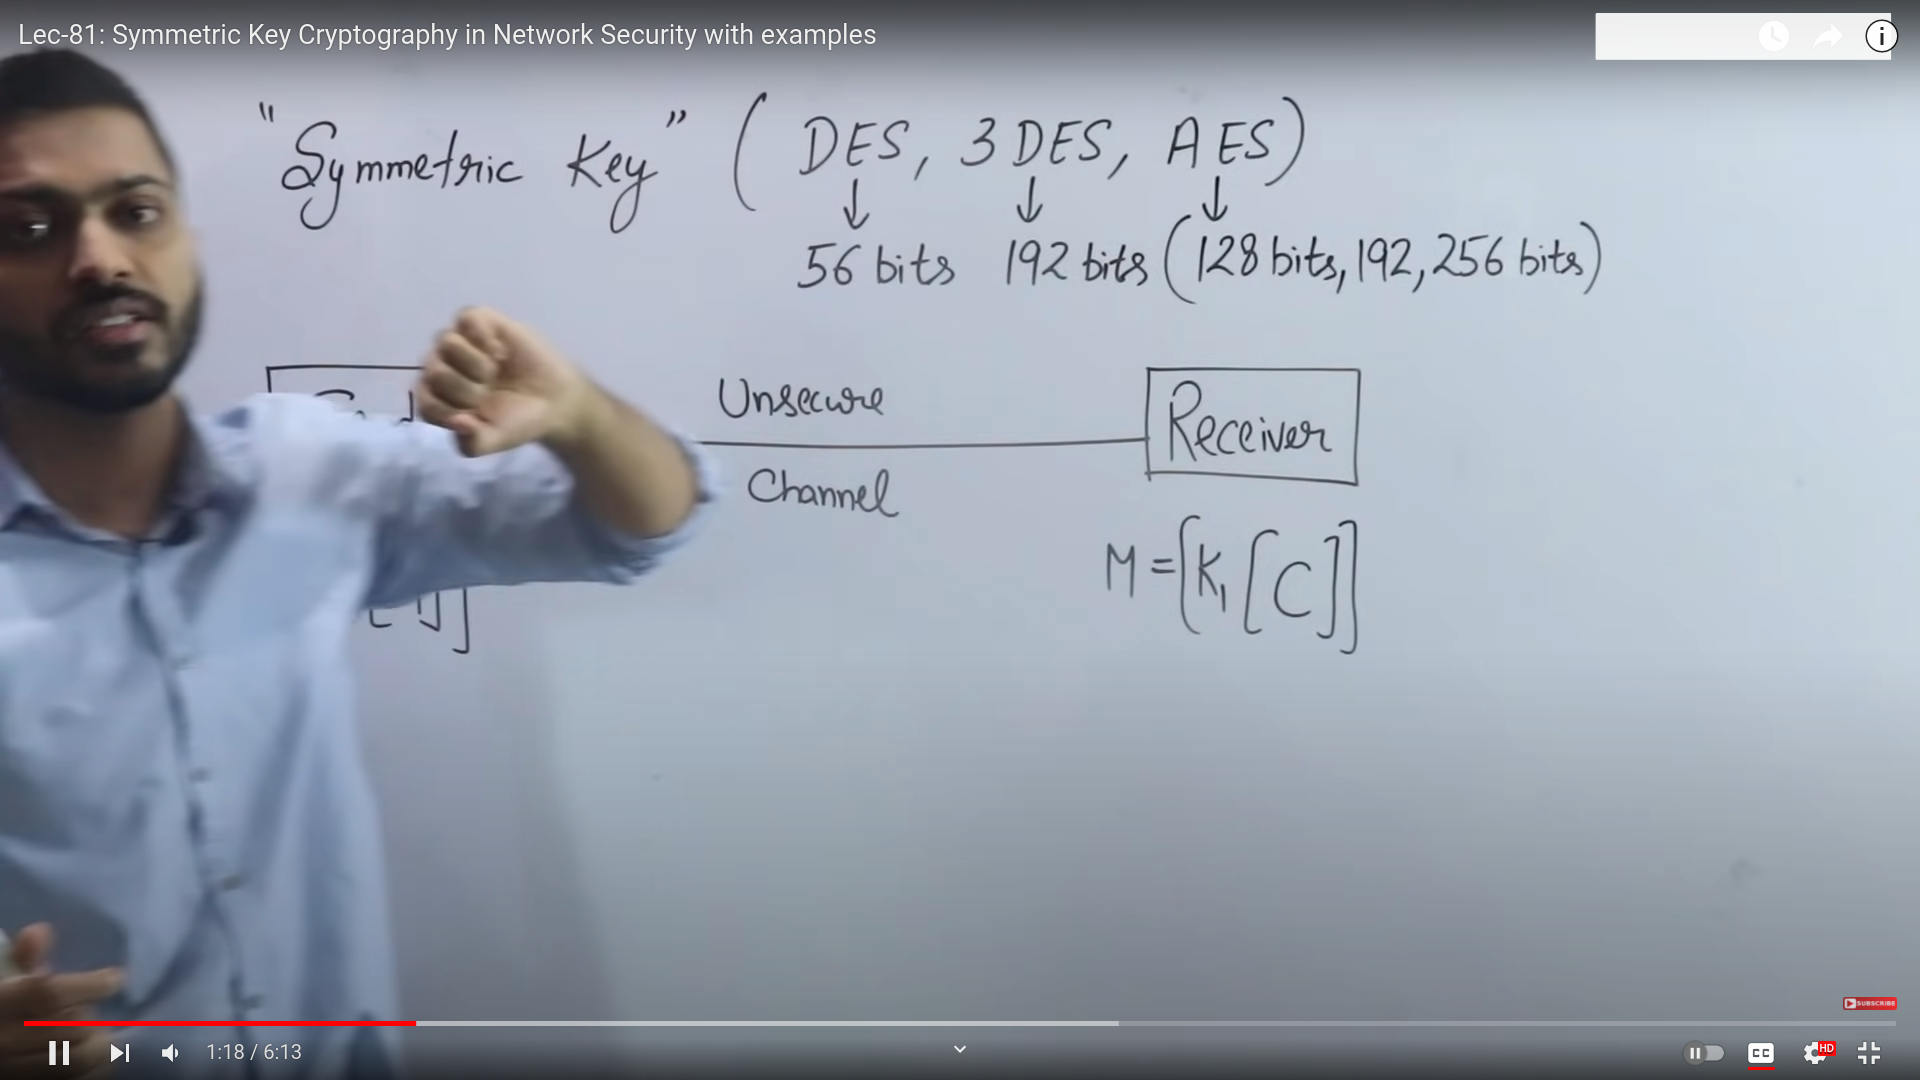 Lec-81: Symmetric Key Cryptography in Network Security with examples
"Symmetric Key" ( DES, 3DES, AES)
↓ ↓ ↓
56 bits 192 bits (128 bits, 192, 256 bits)
Unsecure
Receiver
Channel
M = [K₁ [C]]
SUBSCRIBE
1:18 / 6:13
CC
HD